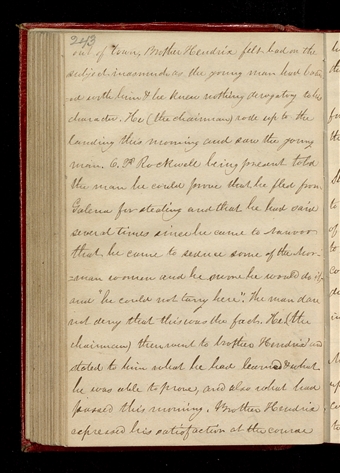 243
out of town, Brother Hendrix felt bad on the
subject inasmuch as the young man had board-
ed with him & he knew nothing derogatory to his
character. He (the chairman) rode up to the
landing this morning and saw the young
man. O. P. Rockwell being present told
the man he could prove that he fled from
Galena for stealing and that he had said
several times since he came to Nauvoo
that he came to seduce some of the Mor-
-mon women and he swore he would do it
and "he could not tarry here". The man dare
not deny that this was the fact. He (the
chairman) then went to brother Hendrix and
stated to him what he had learned & what
he was able to prove, and also what had
passed this morning. Brother Hendrix
expressed his satisfaction at the course